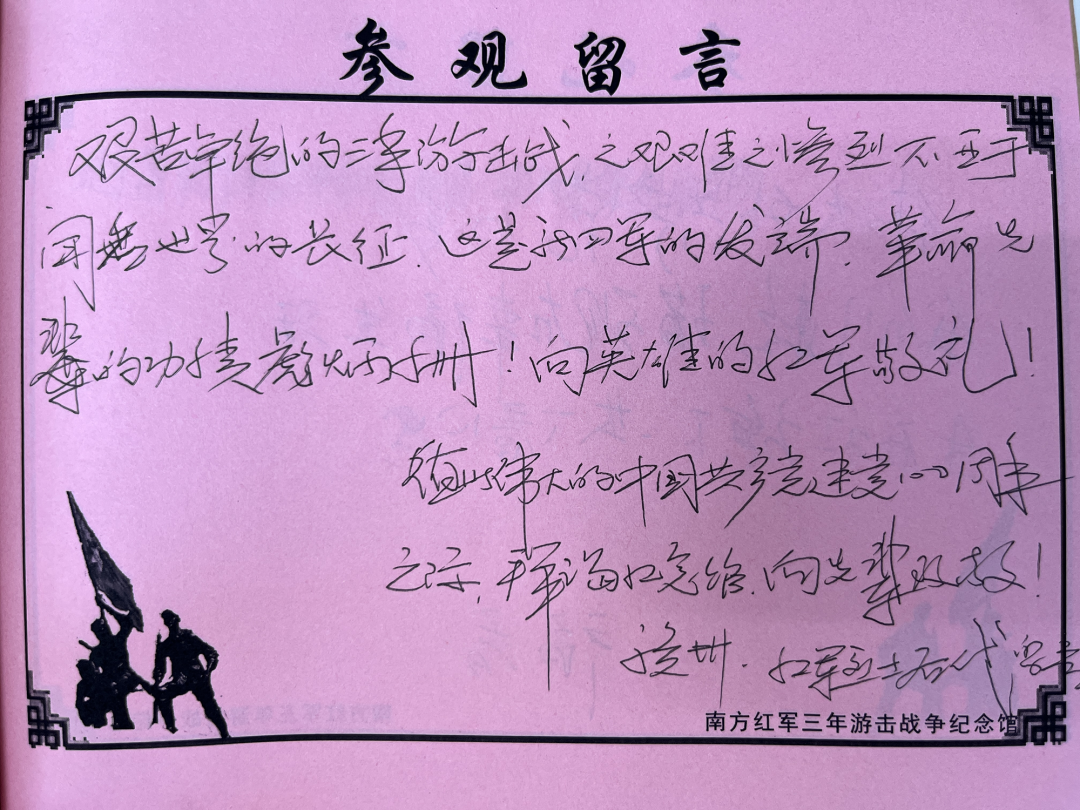 参观留言
艰苦卓绝的三年游击战,之艰难之惨烈不亚于
闻世的长征.这是新四军的发端.革命先
辈的功绩彪炳千册!向英雄的红军敬礼!
值此伟大的中国共产党建党100周年
之际,向先辈致敬!
红军烈士后代
南方红军三年游击战争纪念馆